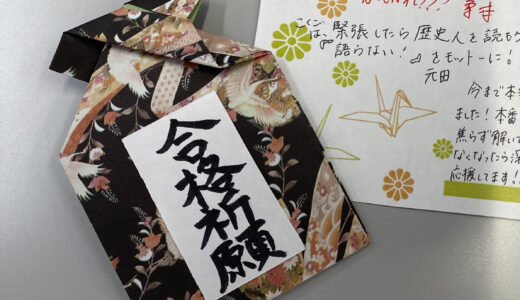 合格祈願
こくごは、
『緊張したら歴史人を読も
語らない！』をモットーに！
元田
今まで本
ました！本番
焦らず解い
なくなったら深
応援してます!!